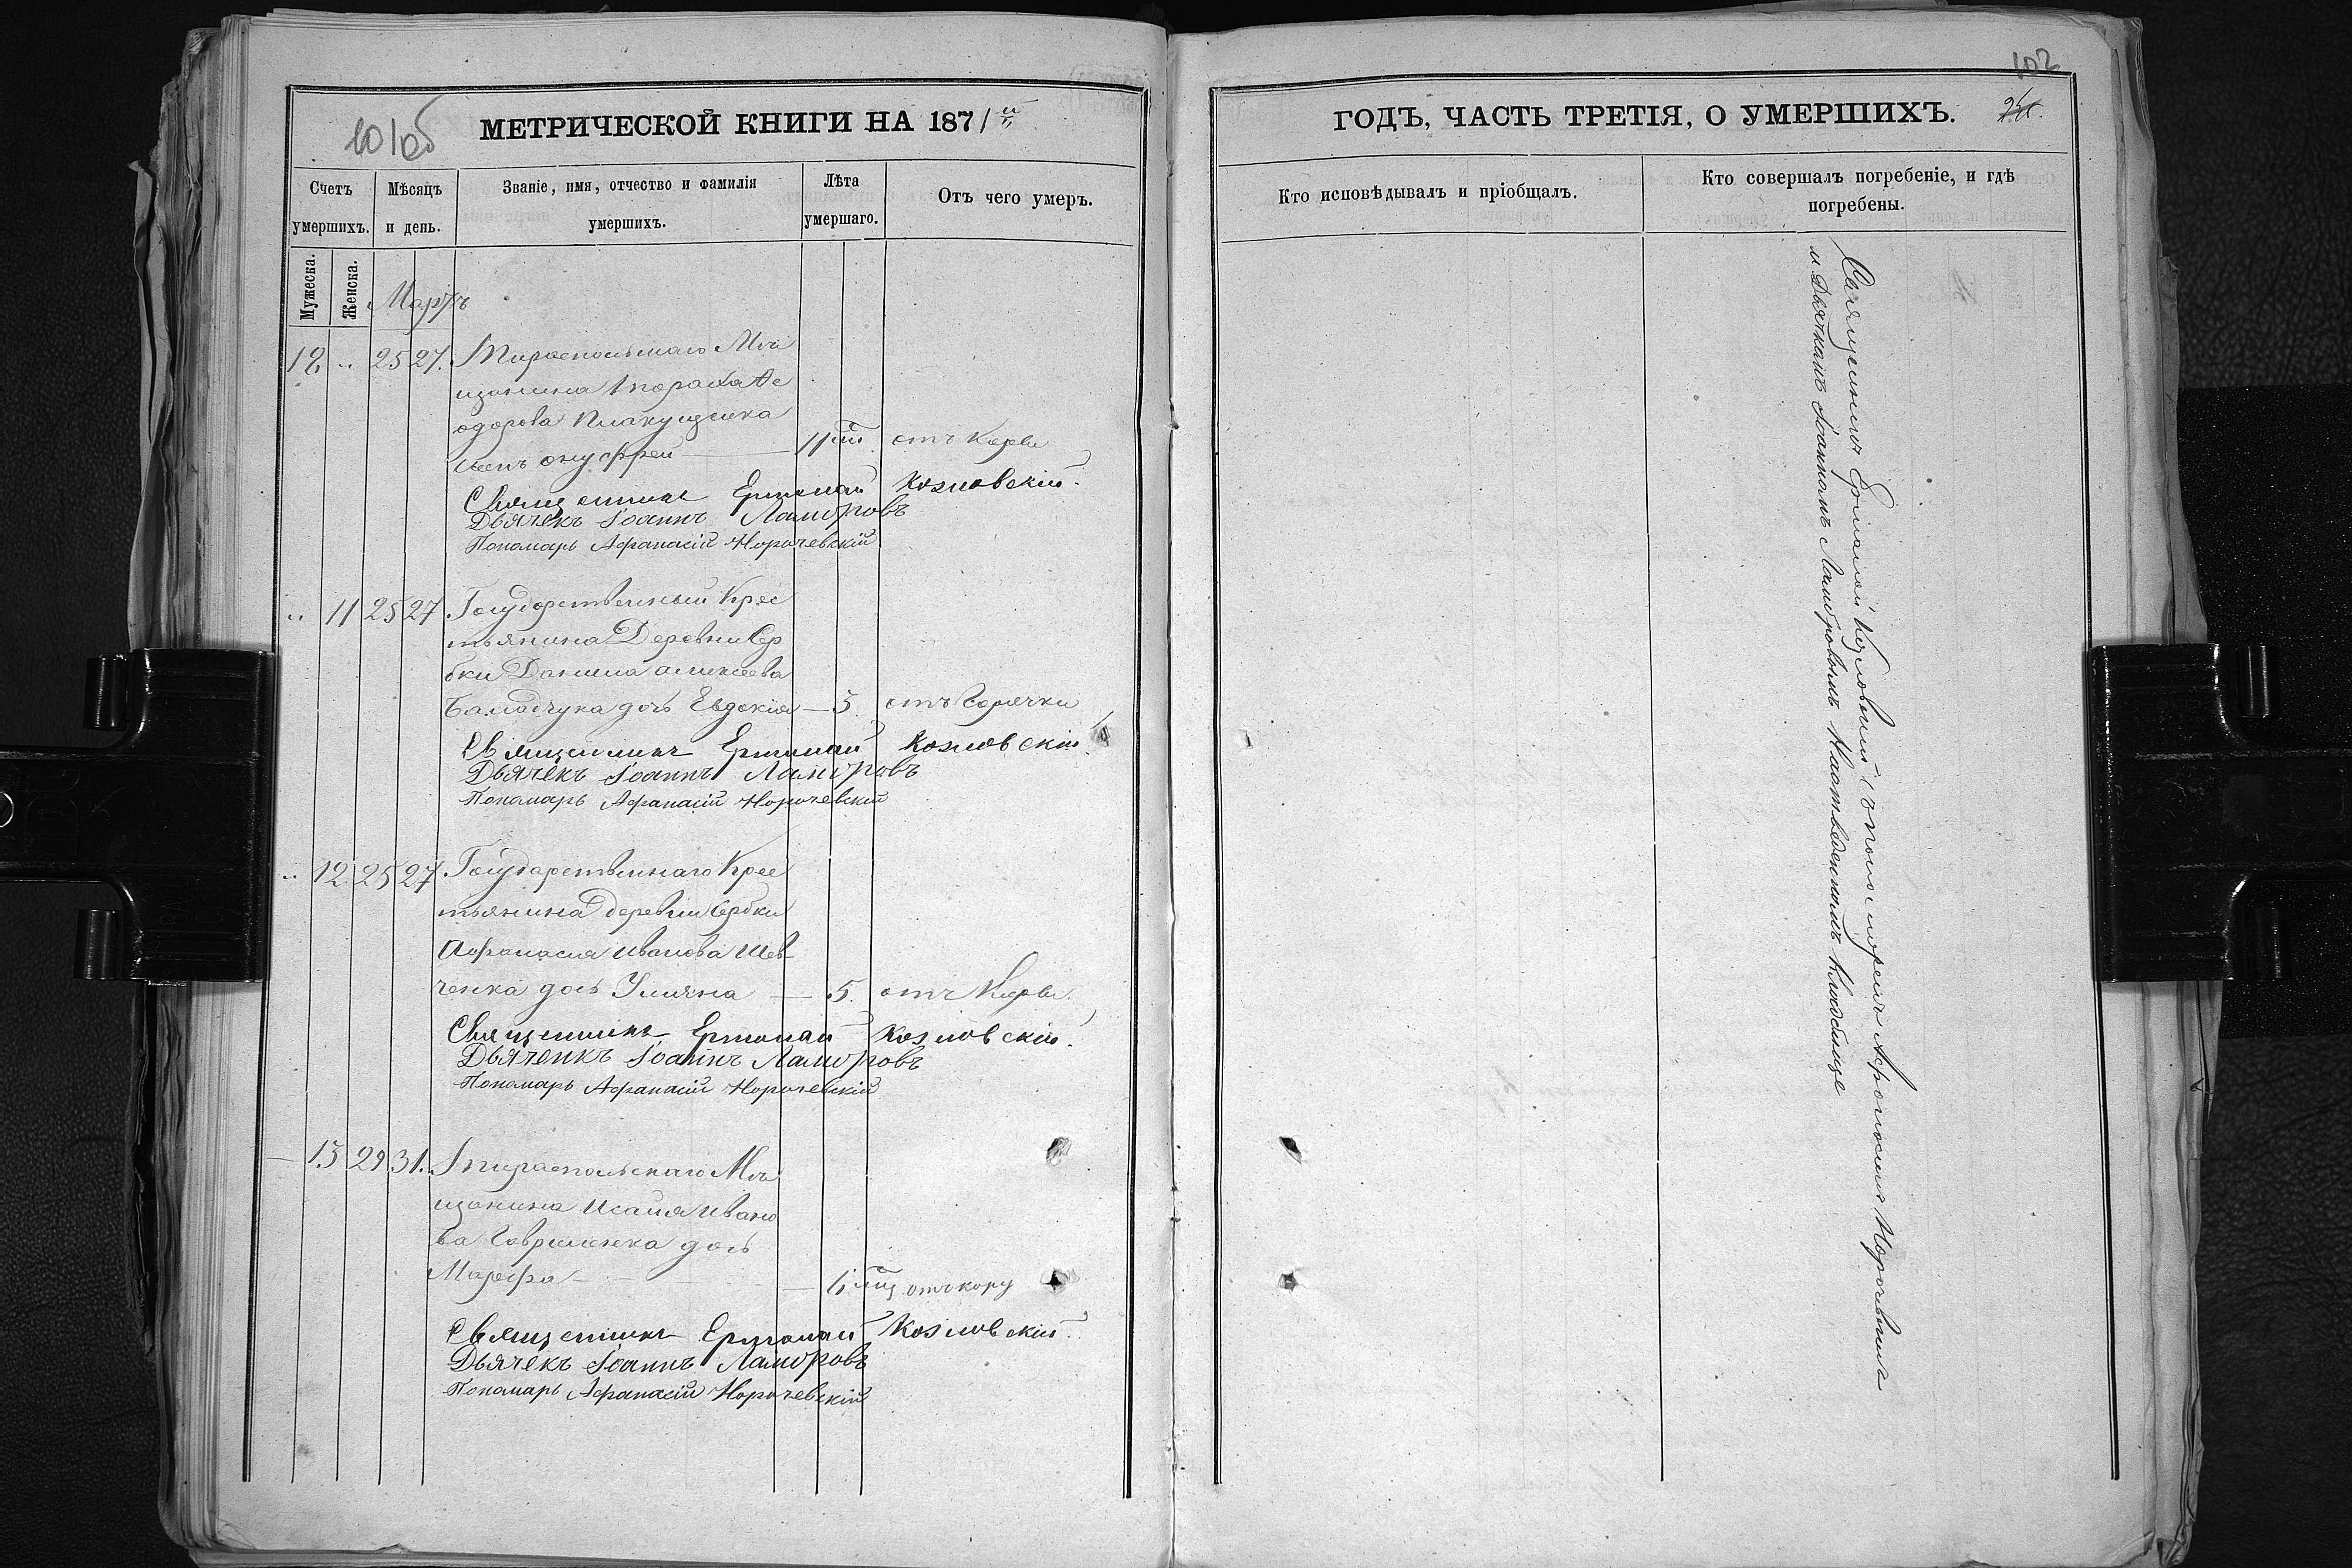 МЕТРИЧЕСКОЙ КНИГИ НА 1871й
Счетъ умершихъ.
Мѣсяцъ и день.
Званіе, имя, отчество и фамилія умершихъ.
Лѣта умершаго.
Отъ чего умеръ.
Мужеска.
Женска.
Мартъ
12 " 25 27. Тираспольскаго Мѣ
щанина Тораха Ѳе
одорова
сынъ Онуфрей — 11 отъ Кори
Священникъ Ермолай Козловскій.
Дьячекъ Іоаннъ
Пономарь Афанасій Норочевскій
" 11 25 27 Государственный Крес
тьянина Деревни Сер
бки Данила Алексеева
дочь Евдокія — 3. отъ Горячки
Священникъ Ермолай Козловскій.
Дьячекъ Іоаннъ
Пономарь Афанасій Норочевскій
" 12. 25 27 Государственнаго Крес
тьянина деревни Сербки
Афанасия Иванова Шев
ченка дочь Улияна — 5. отъ Кори.
Священникъ Ермолай Козловскій.
Дьяченкъ Іоаннъ
Пономарь Афанасій Норочевскій
— 13 29 31. Тираспольскаго Мѣ
щанина Исаия Ивано
ва Гавриленка дочь
Марфа — отъ кору
Священникъ Ермолай Козловскій.
Дьячекъ Іоаннъ
Пономарь Афанасій Норочевскій
102
ГОДЪ, ЧАСТЬ ТРЕТІЯ, О УМЕРШИХЪ.
Кто исповѣдывалъ и пріобщалъ.
Кто совершалъ погребеніе, и гдѣ погребены.
Священникъ Ермолай Козловский съ Пономоремъ Афонасиемъ
и Дьячкамъ Іоанномъ кладбище